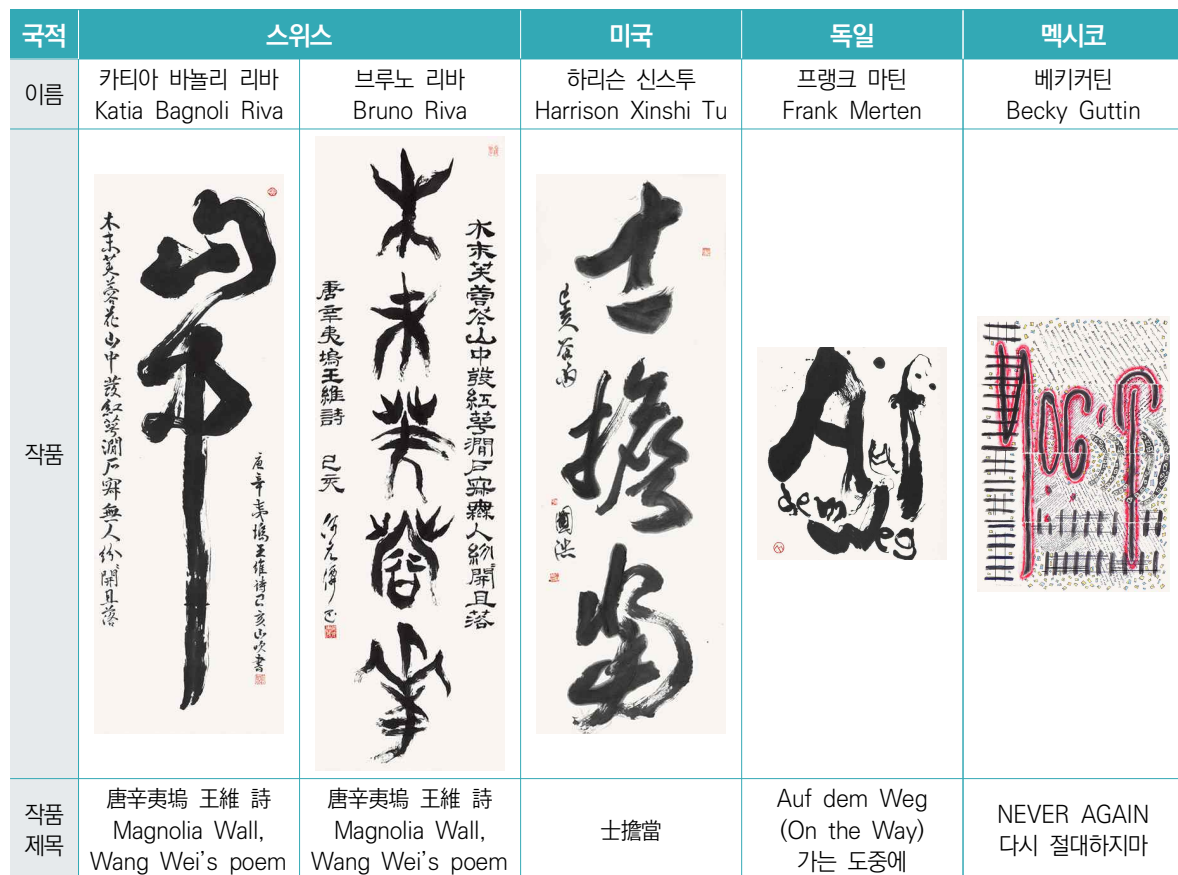 국적 스위스 미국 독일 멕시코
이름
카티아 바뇰리 리바
Katia Bagnoli Riva
브루노 리바
Bruno Riva
하리슨 신스투
Harrison Xinshi Tu
프랭크 마틴
Frank Merten
베키커틴
Becky Guttin
작품
山中
木末芙蓉花山中發紅萼澗戶寂無人紛開且落
唐辛夷塢王維詩己亥山吹書
木末芙蓉花山中發紅萼澗戶寂無人紛開且落
木末芙蓉花
唐辛夷塢王維詩 己亥
士擔當
己亥谷雨
Auf
dem Weg
작품
제목
唐辛夷塢 王維 詩
Magnolia Wall,
Wang Wei's poem
唐辛夷塢 王維 詩
Magnolia Wall,
Wang Wei's poem
士擔當
Auf dem Weg
(On the Way)
가는 도중에
NEVER AGAIN
다시 절대하지마